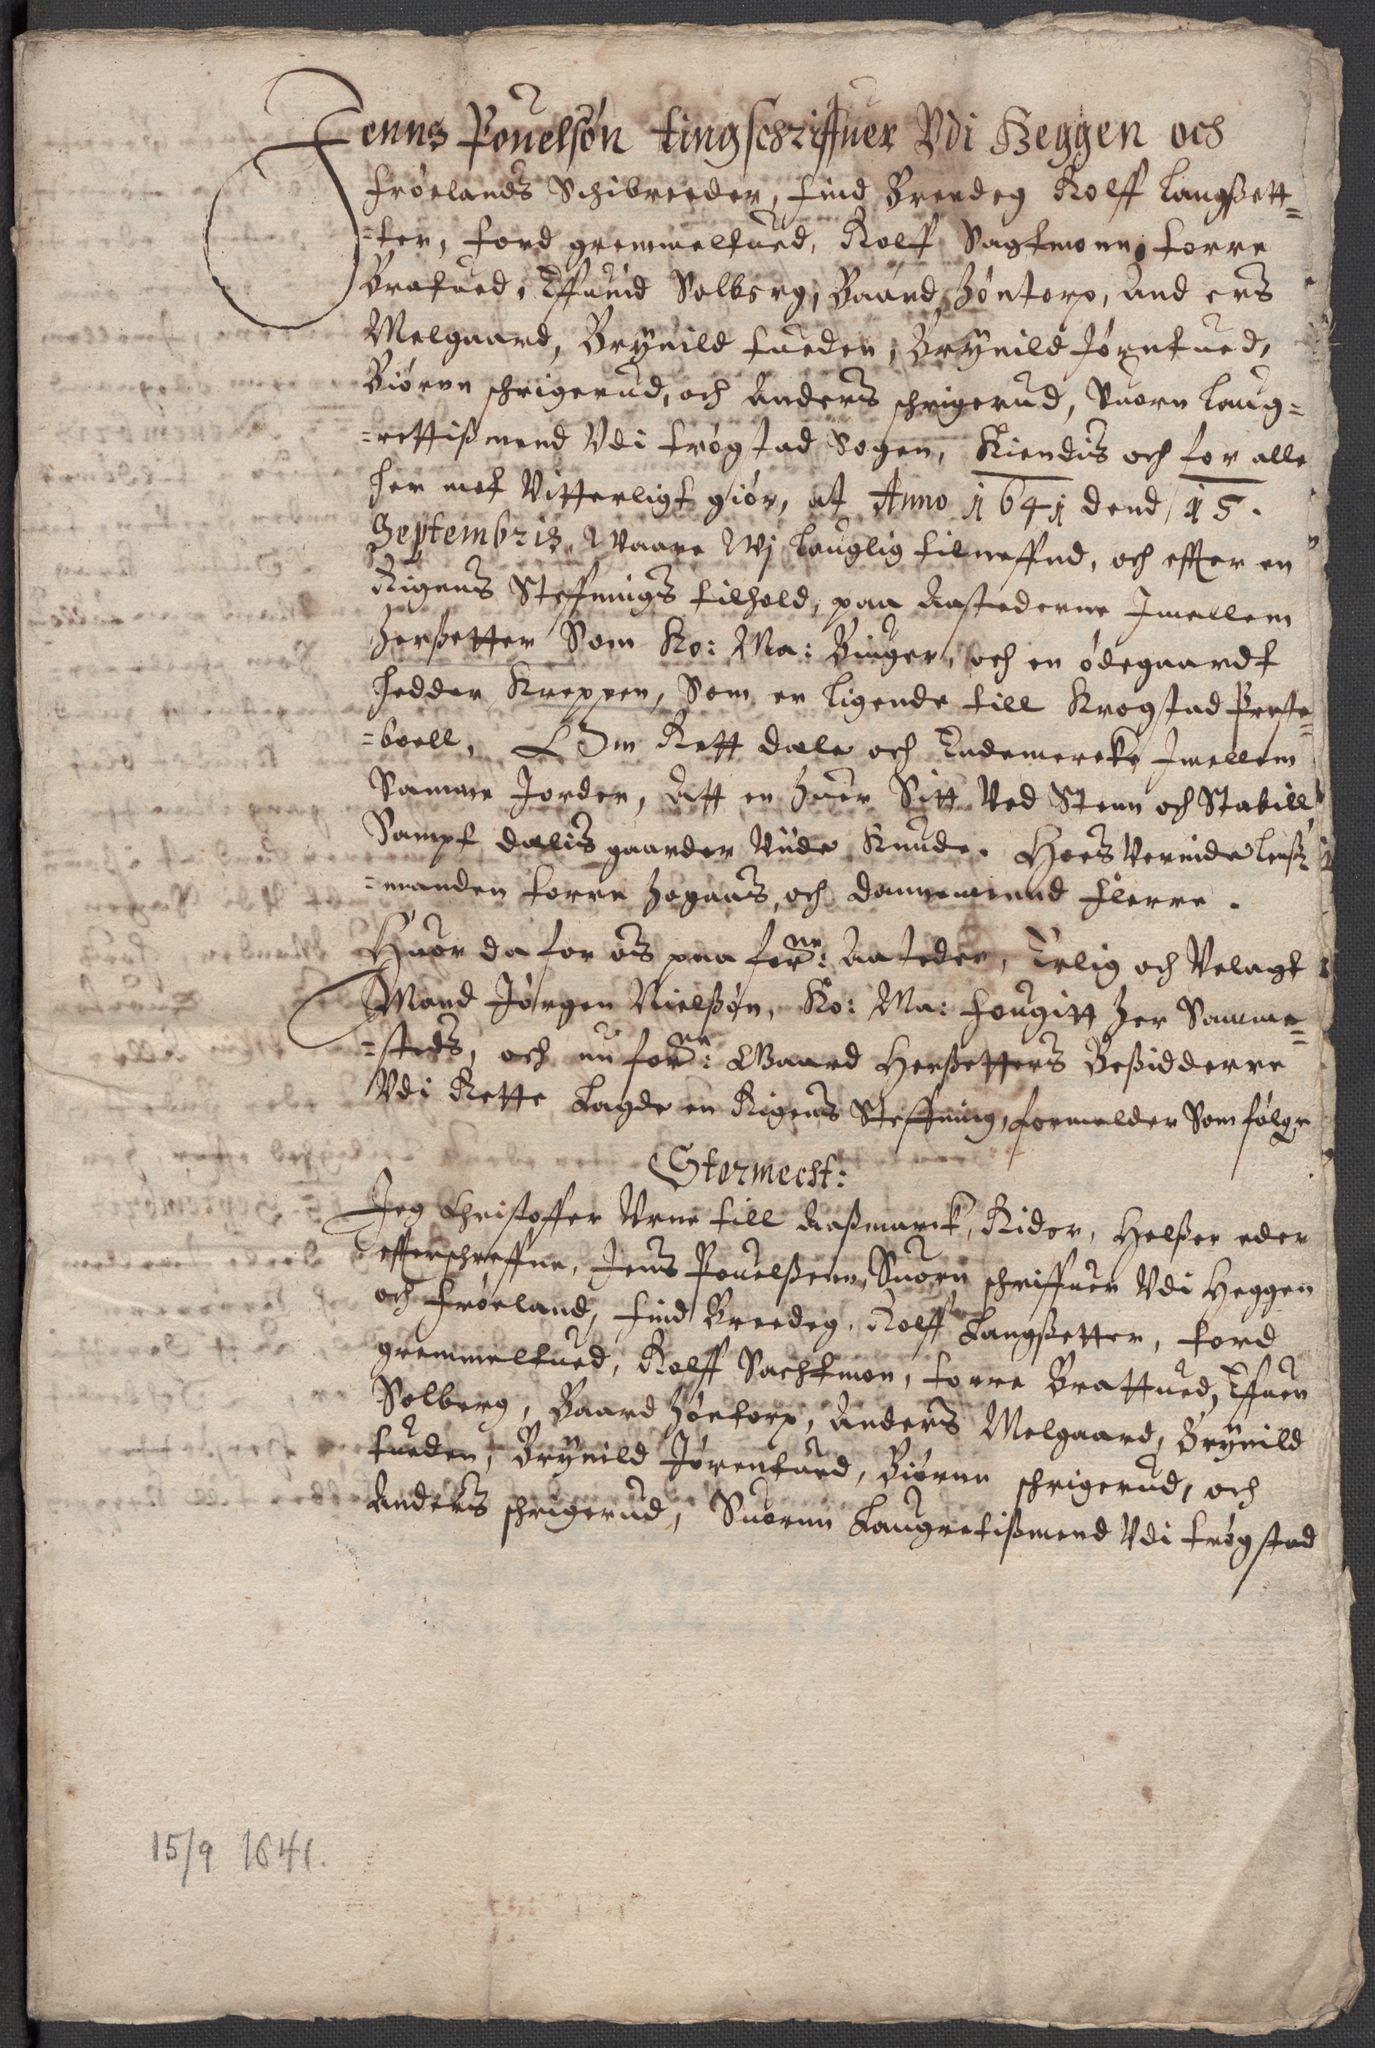 Jenns Pouelsøn tingschriffuer Vdi Heggen och
frøelands Schibreeder, find Brendeg Rolff Langßett=
=ter, tord gremmeltued, Rolff Sagtmonn, torre
Bratued, Effuind Solberg, Baard Høntorp, And ers
Melgaard, Brÿnild tueden, Brÿnild Jørntued,
Biørnn schrigerud, och Anders schrigerud, Suorn Laug=
=rettißmend Vdi trøgstad Sogen, Kiendis och for alle
her met Vitterligt giør, at Anno 1641 dend 15.
Septembris, Waare Wj Lauglig tilneffnd, och effter en
Rigens Steffnings tilhold, paa Aastederne Jmellem
Herßetter Som Ko: Ma: Bøxger, och en ødegaardt
hedder Kreppen, Som er ligende till Krogstad Preste=
=boell, Om Rett deele och Endemercke Jmellem
Samme Jorder, Att en huer Sitt Ved Steen och Stabill,
Sampt deelis gaarder Viide Kunde. Hoes Verinde Lenß=
=manden torre Hogaas, och dannemennd flerre.
Huor da for os paa forne: Aasteder, Erlig och Velagt
Mand Jørgen Nielßøn, Ko: Ma: fougitt her Samme=
=steds, och nu forne: Gaard Herßetters Beßidderre
Vdi Rette Lagde en Rigens Steffning, formelder Som følger
Stormecht:
Jeg Christoffer Vrne till Aaßmarck, Ridor, Helßer eder
effterschreffne, Jens Pouelßenn, Suorn schriffuer Vdi Heggen
och frøeland, find Breedeg, Rolff Langßetter, tord
gremmeltued, Rolff Sachtmon, torre Brattued, Effuen
Solberg, Baard Høntorp, Anders Melgaard, Brÿnild
tueden, Brÿnild Jørentued, Biørnn schrigerud, och
Anders schrigerud, Suornn Laugretißmend Vdi trøgstad
15/9 1641.